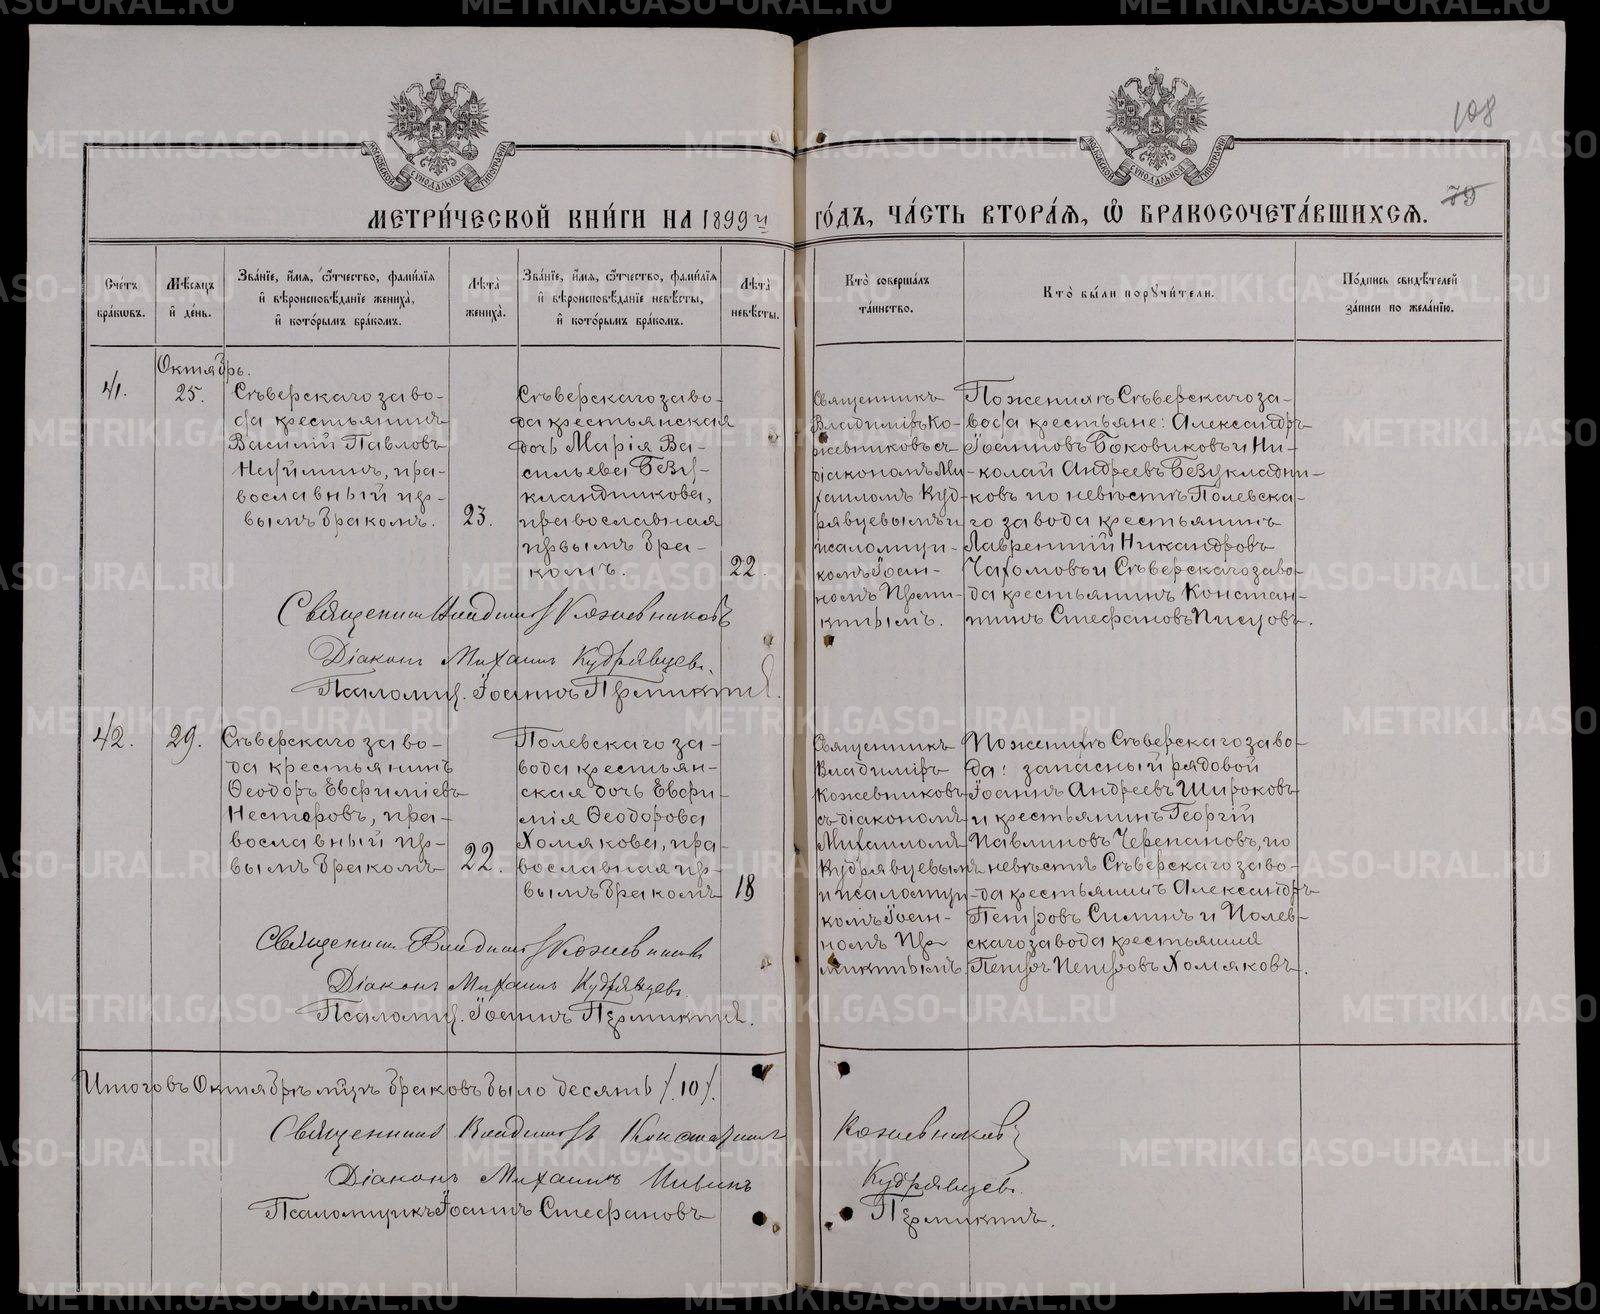 108
79
МЕТРИ́ЧЕСКОЙ КНИ́ГИ НА 1899й ГО́ДЪ, ЧА́СТЬ ВТОРА́Я, Ѡ БРАКОСОЧЕТА́ВШИХСЯ.
Сче́тъ бра́кѡвъ.
Мѣ́сяцъ и҆ де́нь.
Зва́нїе, и҆́мя, ѻ҆́тчество, фами́лїя
и҆ вѣроисповѣ́данїе жениха̀,
и҆ кото́рымъ бра́комъ.
Лѣта̀ жениха̀.
Зва́нїе, и҆́мя, ѻ҆́тчество, фами́лїя
и҆ вѣроисповѣ́данїе невѣ́сты,
и҆ кото́рымъ бра́комъ.
Лѣта̀ невѣ́сты.
Кто̀ соверша́лъ
та́инство.
Кто̀ бы́ли порꙋчи́тели.
По́дпись свидѣ́телей
за́писи по жела́нїю.
Октябрь.
41.
25.
Сѣверскаго заво-
да крестьянинъ
Василій Павловъ
православный пер-
вымъ бракомъ.
23.
Сѣверскаго заво-
да крестьянская
дочь Марія Ва-
сильева Безу-
кладникова,
православная
первымъ бра-
комъ.
22.
Священникъ
Владиміръ Ко-
жевниковъ съ
діакономъ Ми-
хаиломъ Куд-
рявцевымъ и
псаломщи-
комъ Іоан-
номъ Перми-
кинымъ.
По женихѣ Сѣверскаго за-
вода крестьяне: Александръ
Іоанновъ Боковиковъ и Ни-
колай Андреевъ Безукладни-
ковъ по невѣстѣ Полевска-
го завода крестьянинъ
Лаврентій Никандровъ
и Сѣверскаго заво-
да крестьянинъ Констан-
тинъ Стефановъ Писцовъ.
Священникъ Владиміръ Кожевниковъ
Діаконъ Михаилъ Кудрявцевъ.
Псаломщ. Іоаннъ Пермикинъ.
42.
29.
Сѣверскаго заво-
да крестьянинъ
Ѳеодоръ Евфиміевъ
Нестеровъ, пра-
вославный пер-
вымъ бракомъ
22.
Полевскаго за-
вода крестьян-
ская дочь Евфи-
мія Ѳеодорова
Хомякова, пра-
вославная пер-
вымъ бракомъ
18
Священникъ
Владиміръ
Кожевниковъ
съ діакономъ
Михаиломъ
Кудрявцевымъ
и псаломщи-
комъ Іоан-
номъ Пер-
микинымъ
По женихѣ Сѣверскаго заво-
да: запасный рядовой
Іоаннъ Андреевъ Широковъ
и крестьянинъ Георгій
Павлиновъ Черепановъ, по
невѣстѣ Сѣверскаго заво-
да крестьянинъ Александръ
Петровъ Силинъ и Полев-
скаго завода крестьянинъ
Петръ Петровъ Хомяковъ.
Священникъ Владиміръ Кожевниковъ
Діаконъ Михаилъ Кудрявцевъ.
Псаломщ. Іоаннъ Пермикинъ.
Итого въ Октябрѣ мцѣ браковъ было десять /.10/.
Священникъ Владиміръ Кожевниковъ
Діаконъ Михаилъ Кудрявцевъ.
Псаломщикъ Іоаннъ Стефановъ Пермикинъ.
METRIKI.GASO-URAL.RU